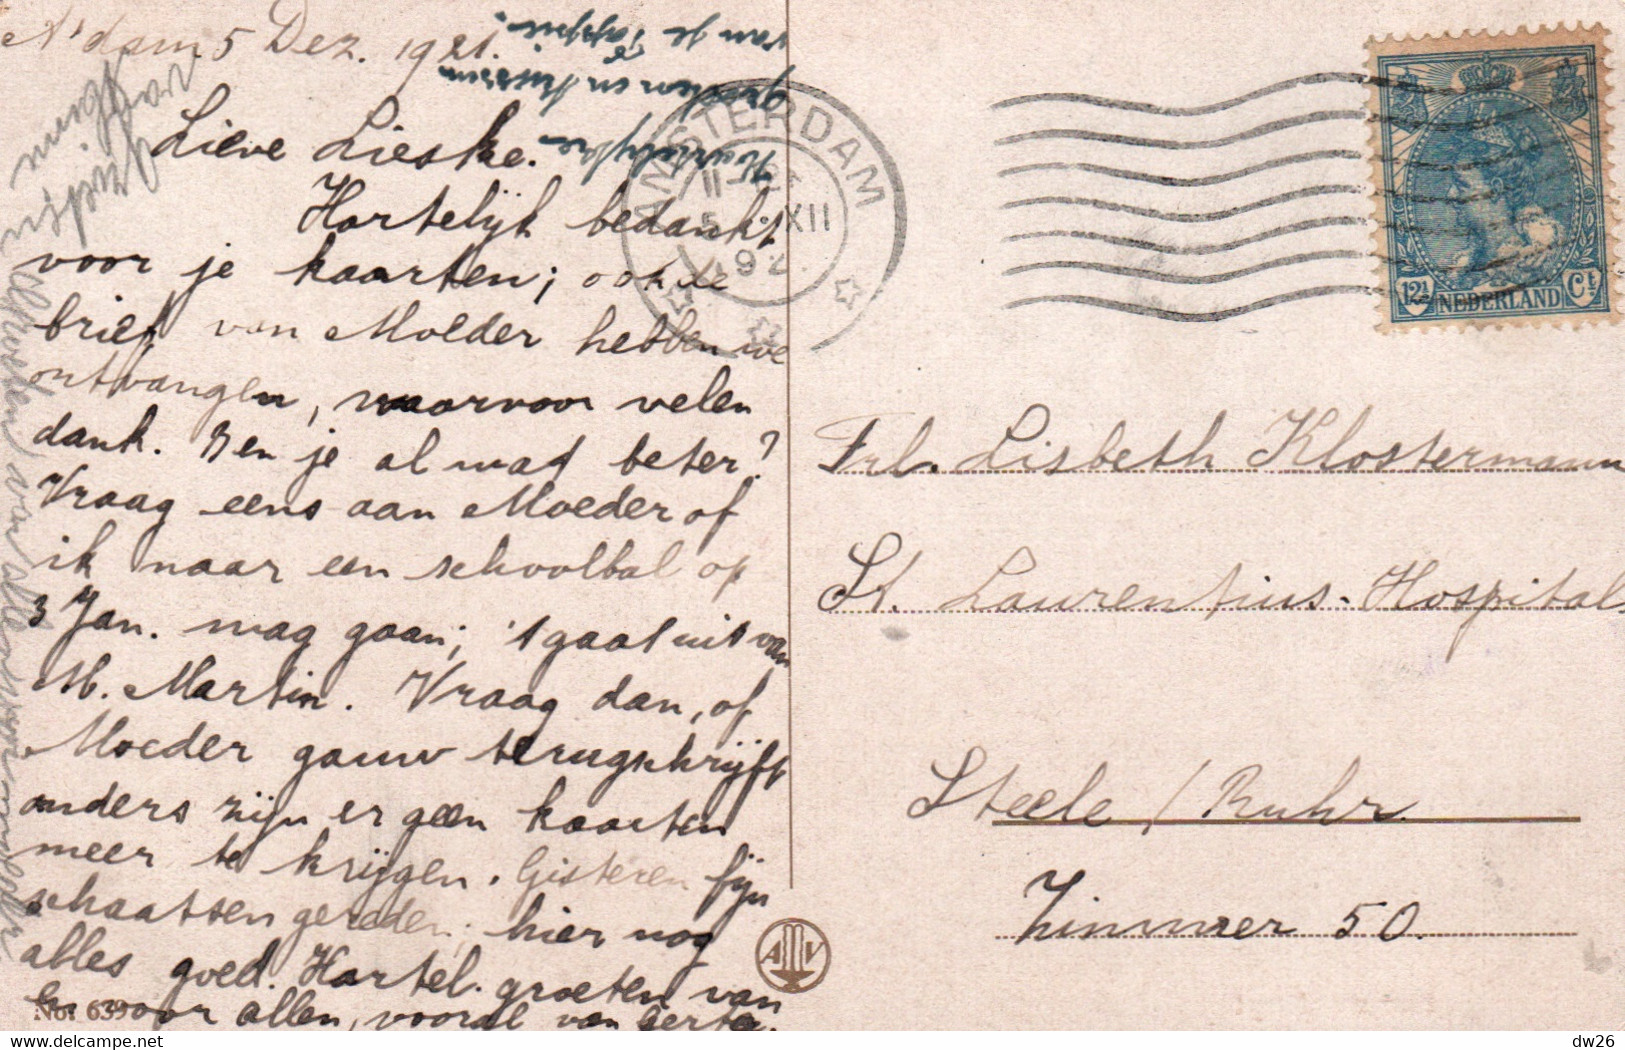 A'dam 5 Dez. 1921.
Lieve Lieske.
Hartelijk bedankt
voor je kaarten; ook de
brief van Moeder hebben we
ontvangen, waarvoor velen
dank. Ben je al wat beter?
Vraag eens aan Moeder of
ik naar een schoolbal op
3 Jan. mag gaan; 't gaat uit van
M. Martin. Vraag dan, of
Moeder gauw terugschrijft
anders zijn er geen kaarten
meer te krijgen. Gisteren fijn
schaatsen gereden; hier nog
alles goed. Hartel. groeten van
en voor allen, vooral van Gerta.
Hartelijke
groeten en
van je Pappie.
van allen
AMSTERDAM
XII
NEDERLAND
12½ Ct
Frl. Lisbeth Klostermann
St. Laurentius-Hospital
Steele / Ruhr.
Zimmer 50.
No: 639
A V
dw26